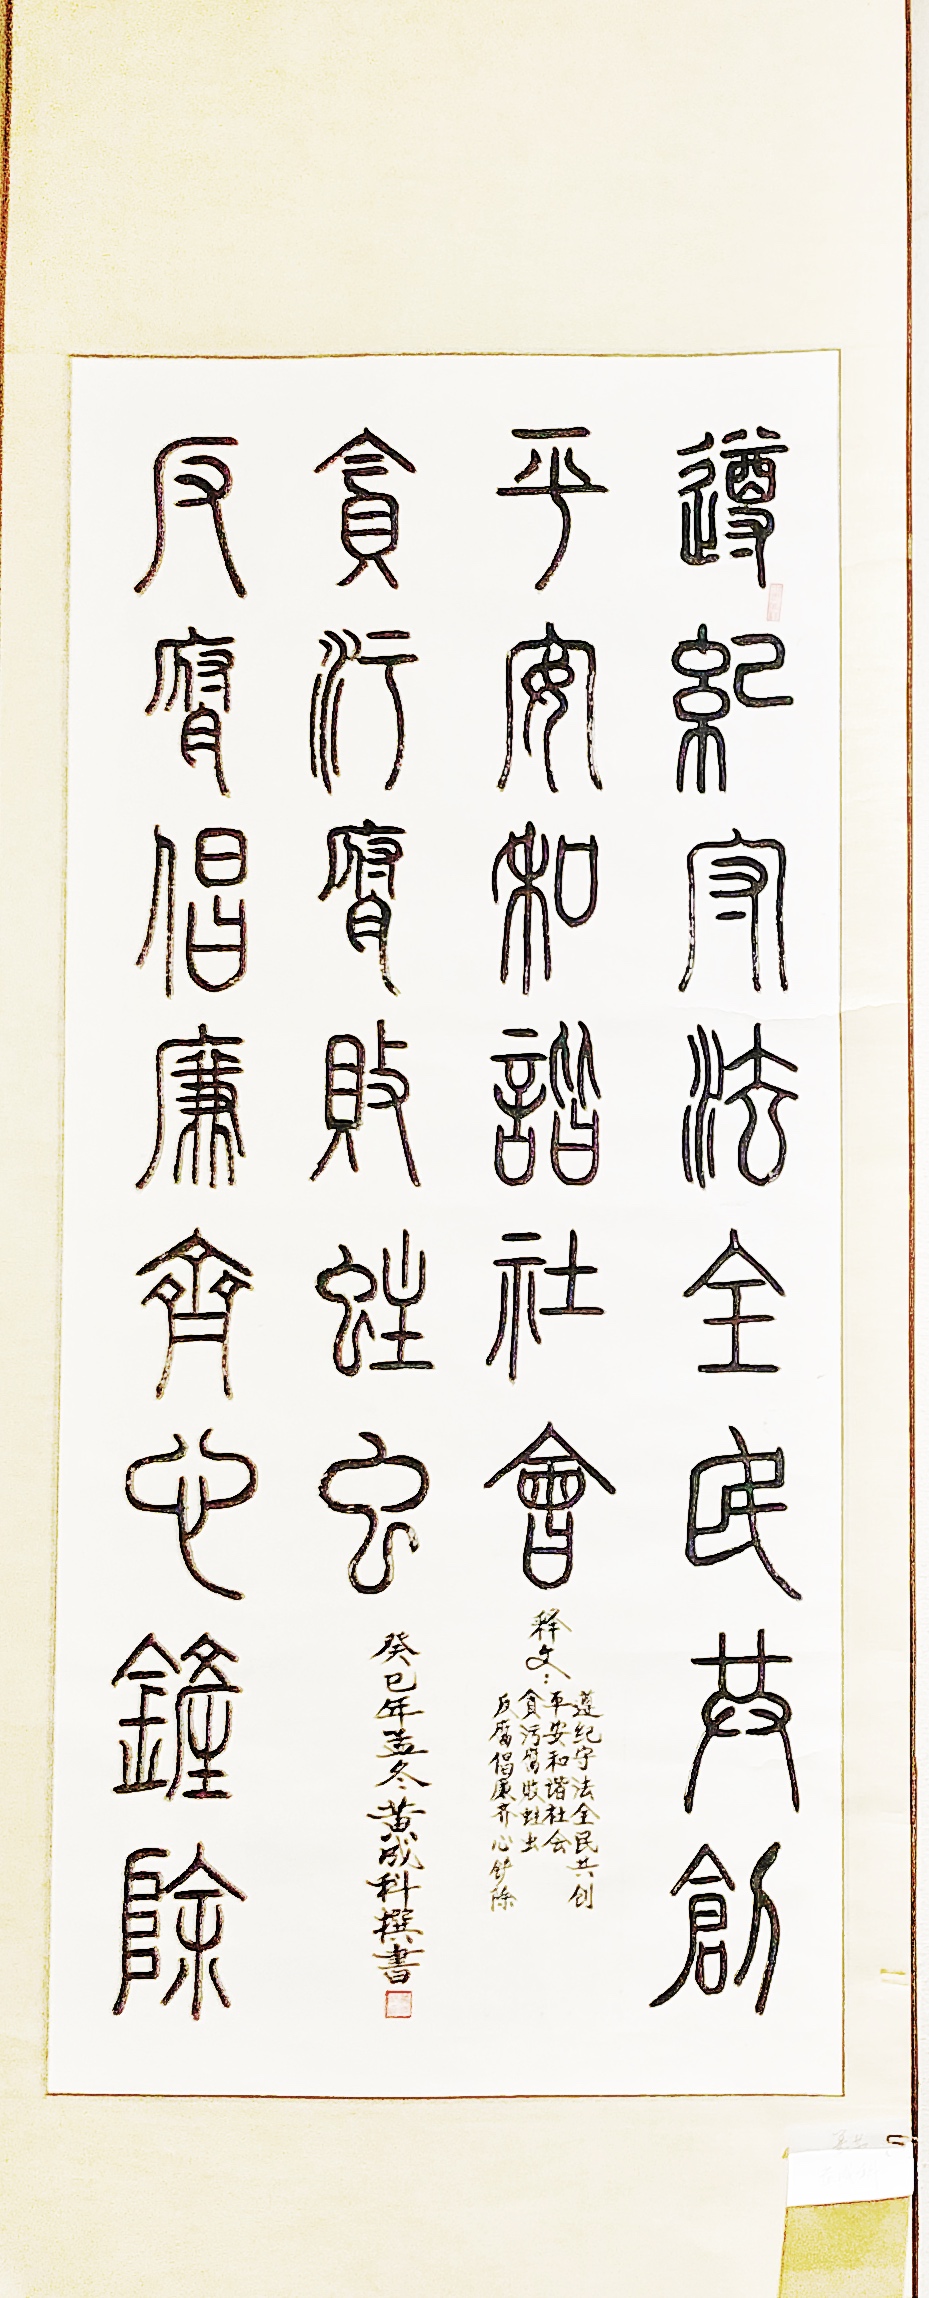 遵紀守法全民共創
平安和諧社會
貪污腐敗蛀虫
反腐倡廉齊心鏟除
释文：
遵纪守法全民共创
平安和谐社会
贪污腐败蛀虫
反腐倡廉齐心铲除
癸巳年孟冬黄成科撰書